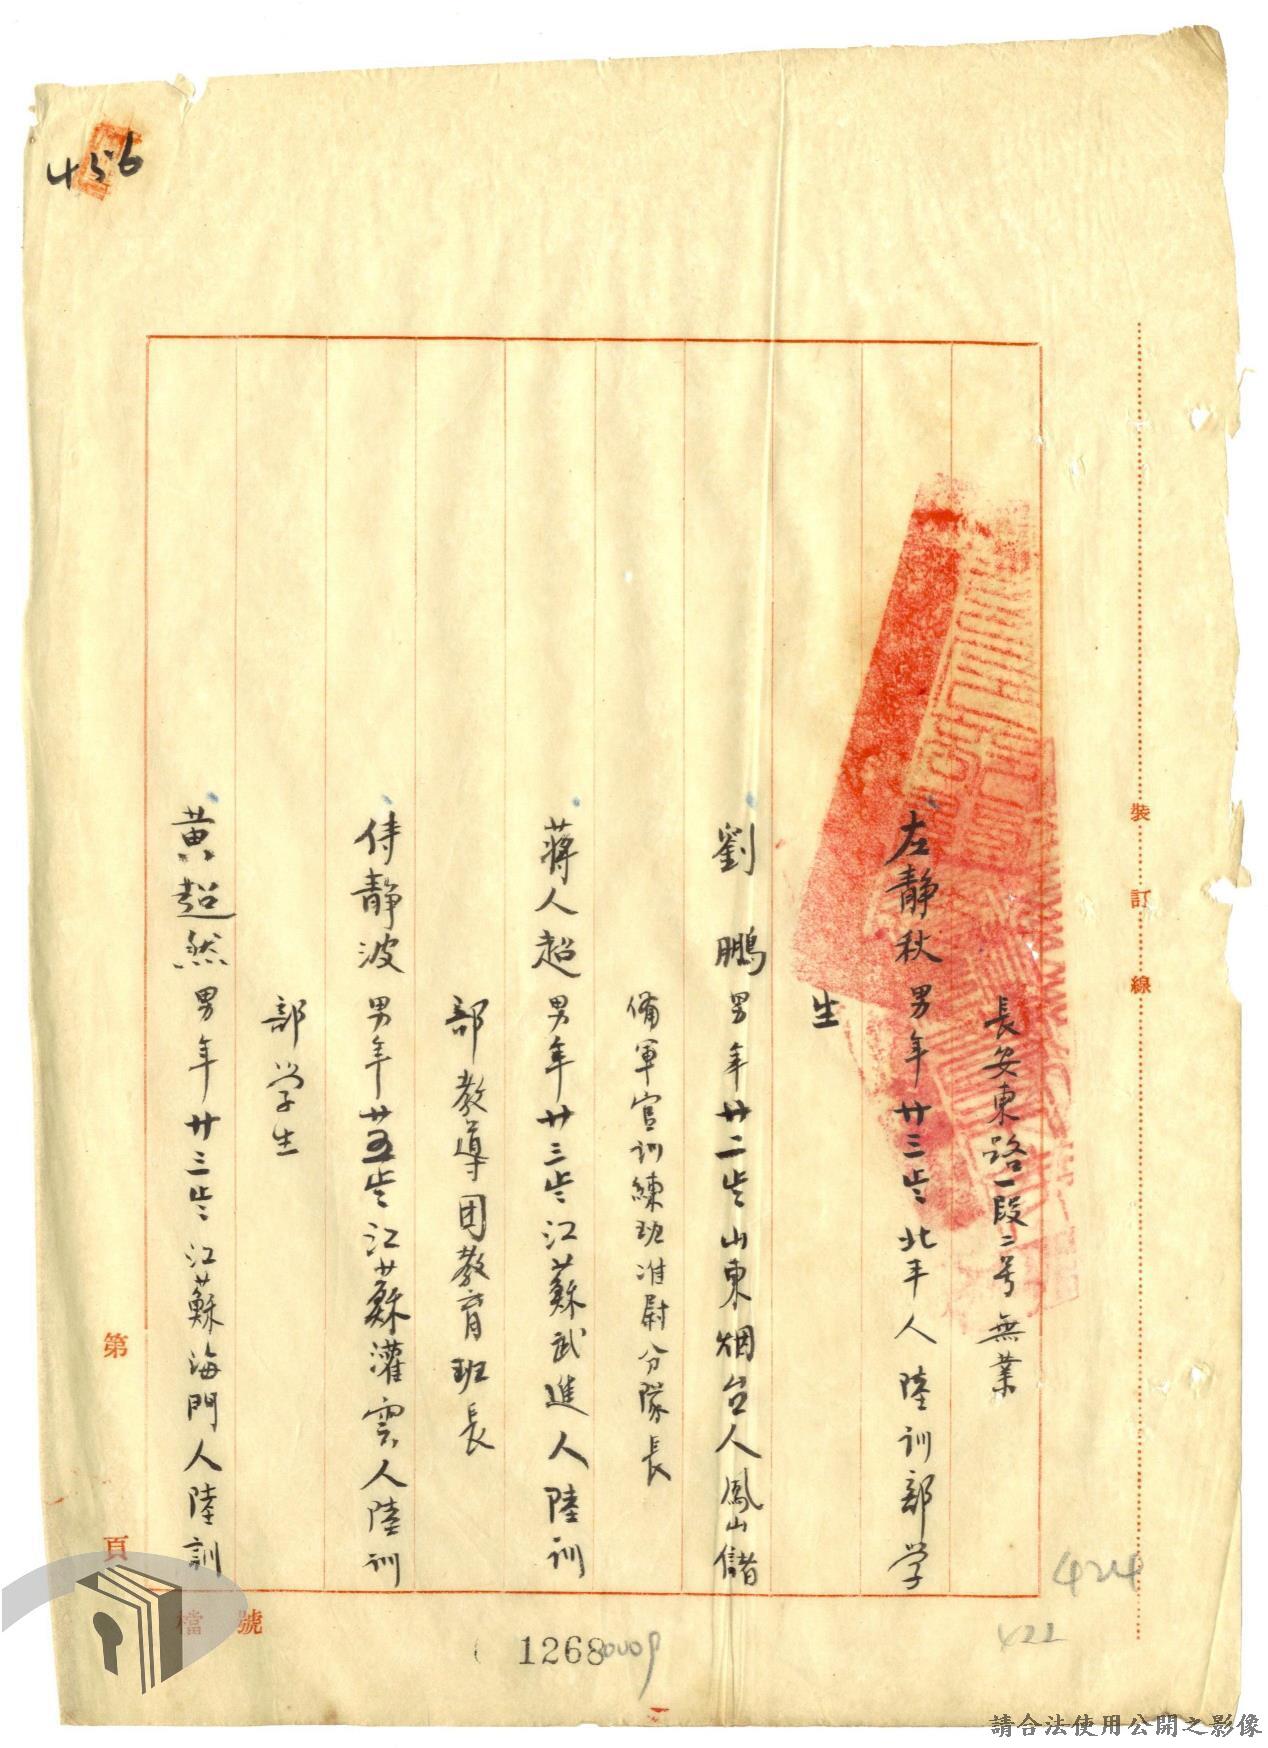 456
裝訂線
長安東路一段二号無業
左靜秋男年廿三岁北平人陸训部学
生
劉鵬男年廿二岁山東烟台人鳳山儲
備軍官训練班准尉分隊長
蔣人超男年廿三岁江蘇武進人陸训
部教導团教育班長
侍靜波男年廿五岁江蘇灌雲人陸训
部学生
黃超然男年廿三岁江蘇海門人陸訓
第 頁
檔號
424
422
1268
0009
請合法使用公開之影像